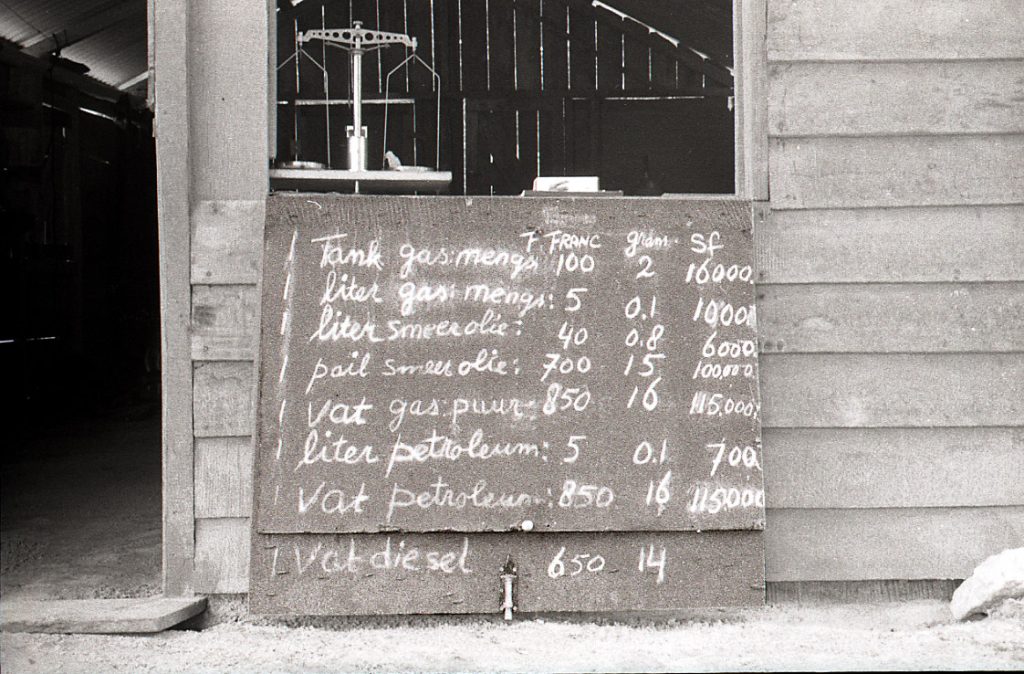 FRANC gram Sf
1 Tank gas:mengs 100 2 16000.
1 liter gas:mengs: 5 0.1
1 liter smeerolie: 40 0.8 6000.
1 pail smeerolie: 700 15 100,000.
1 vat gas puur: 850 16 115.000.
1 liter petroleum: 5 0.1 700.
1 vat petroleum: 850 16 115.000
1 vat diesel 650 14